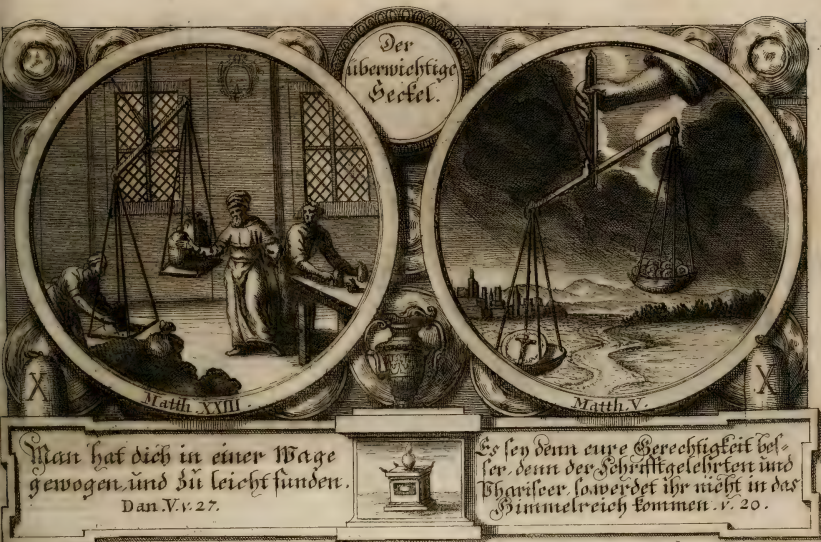 Der
überwichtige
Seckel.
Matth. XXIII.
Matth. V.
X
X
Man hat dich in einer Wage
gewogen, und zu leicht funden.
Dan. V. v. 27.
Es sey denn eure Gerechtigkeit bes-
ser, denn der Schrifftgelehrten und
Phariseer, so werdet ihr nicht in das
Himmelreich kommen. v. 20.